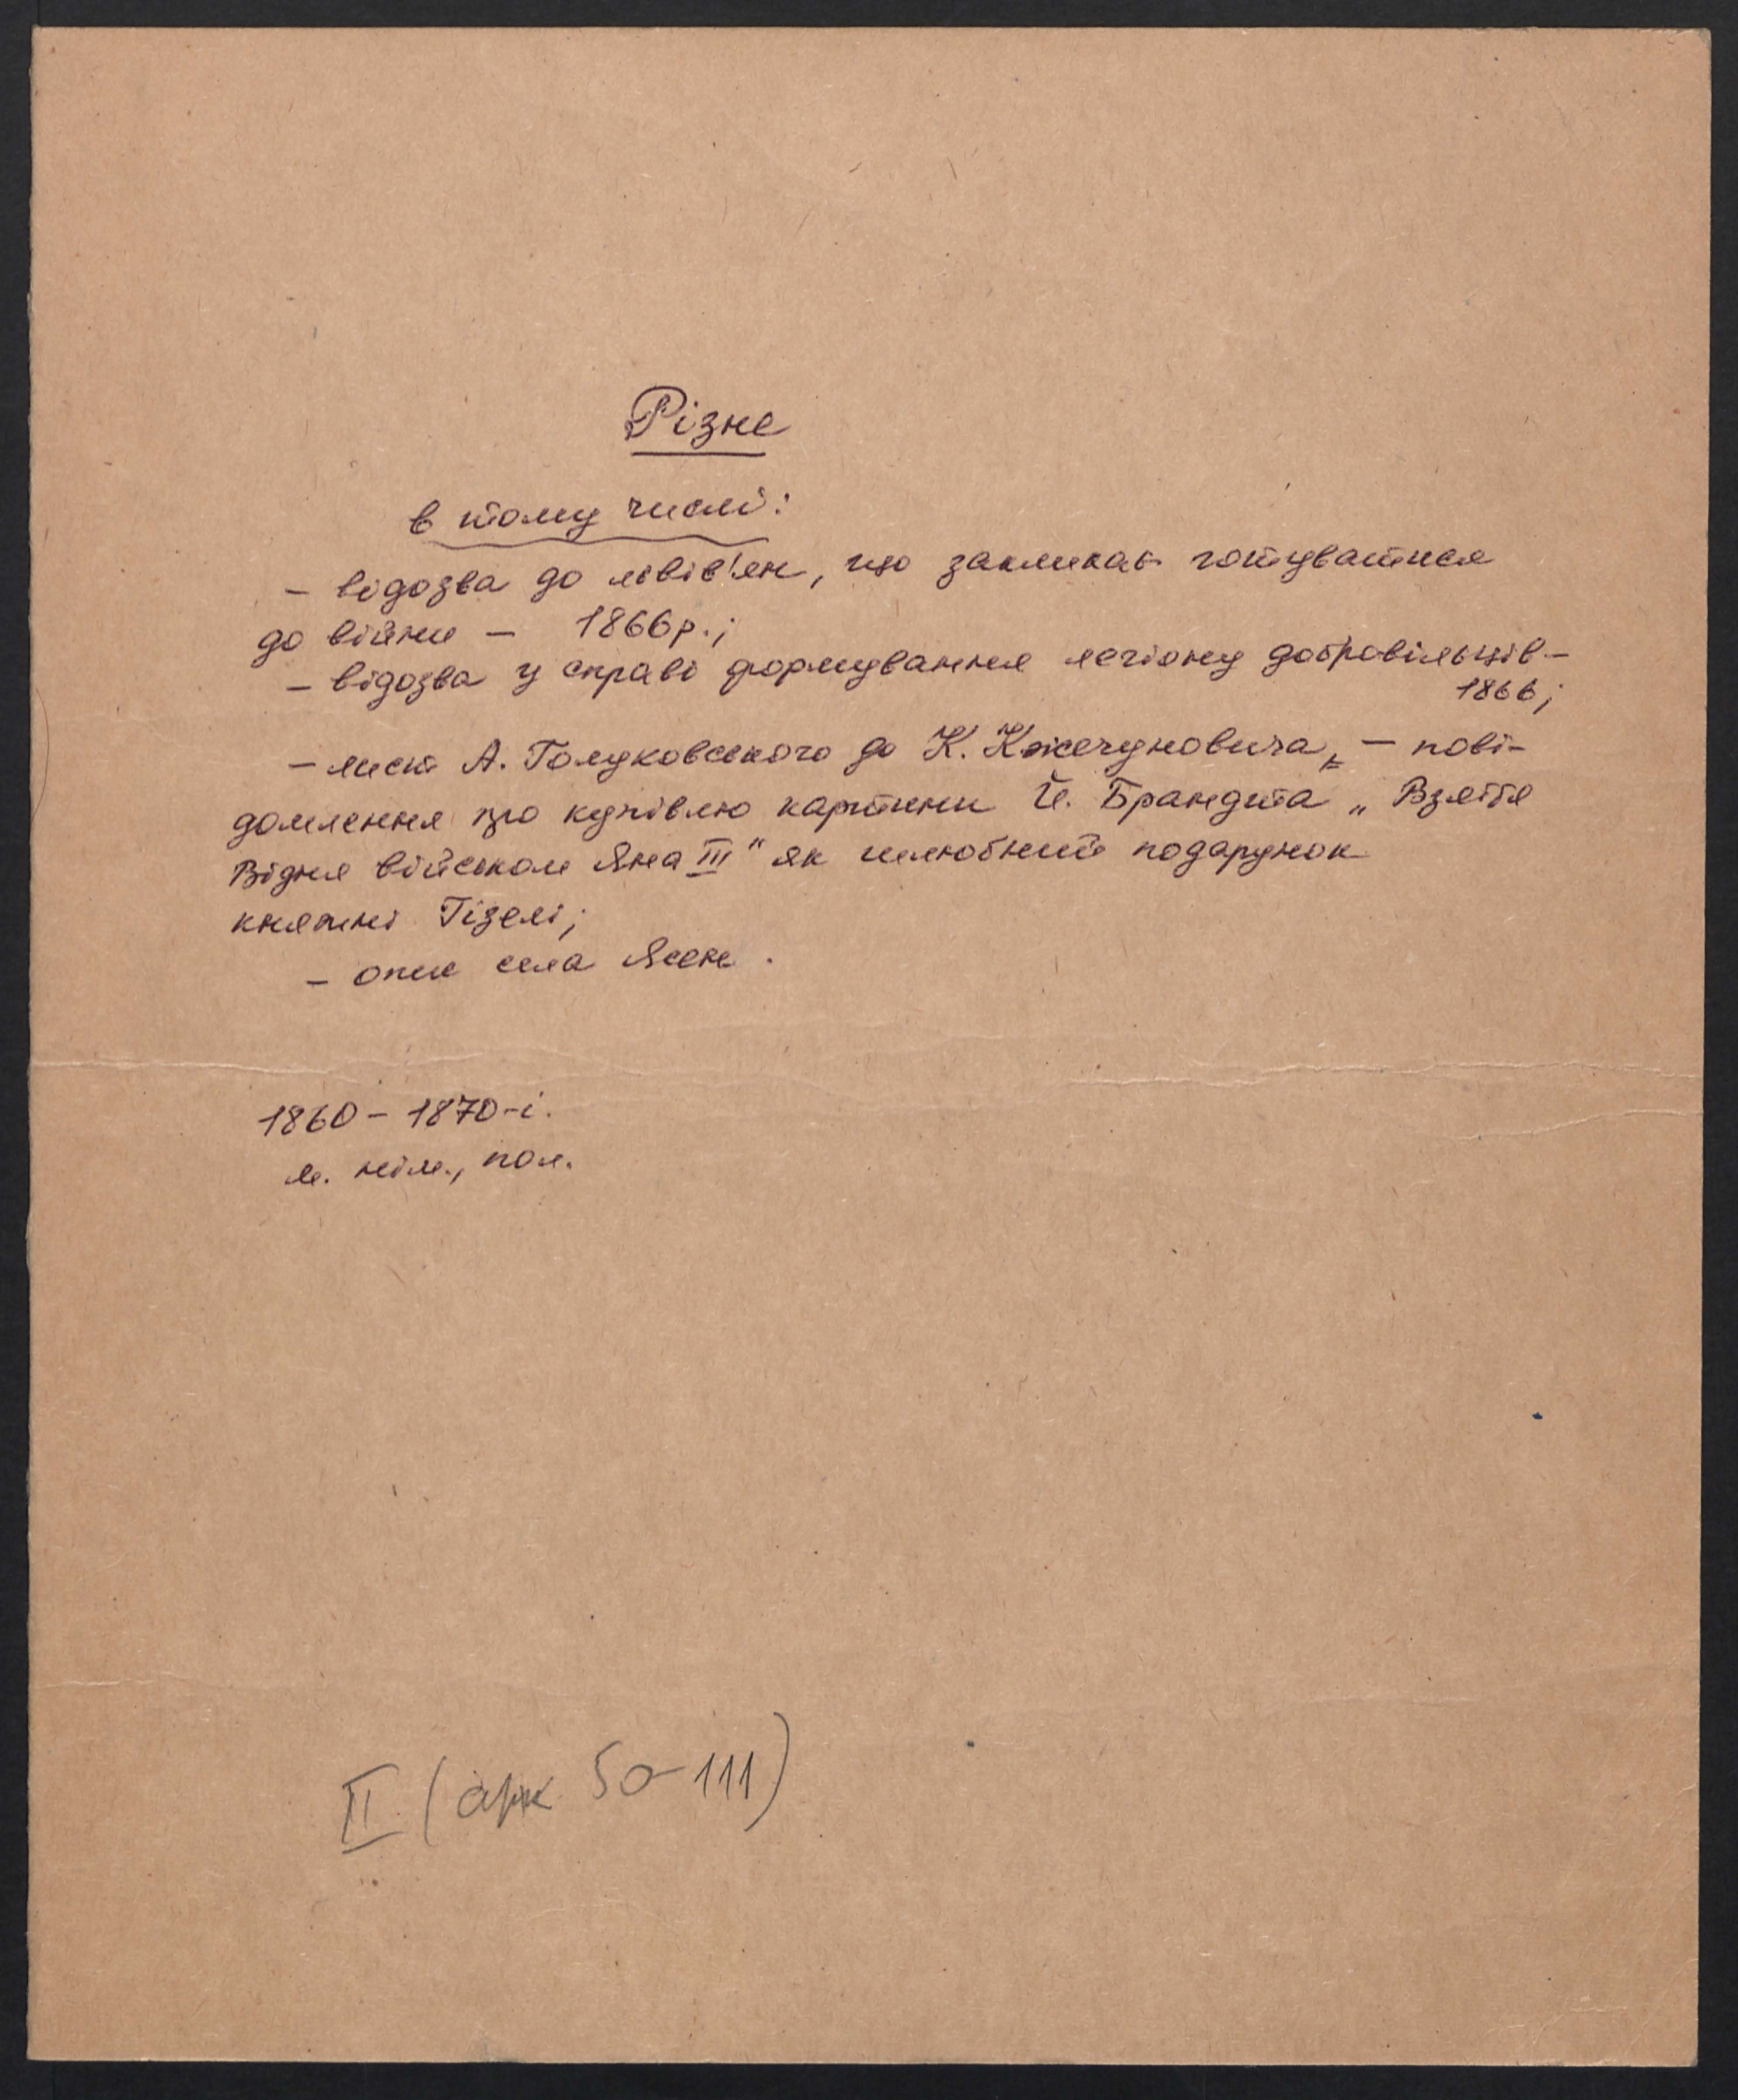 Різне
в тому числі:
– відозва до львів'ян, що закликає готуватися
до війни – 1866р.;
– відозва у справі формування легіону добровільців –
1866;
– лист А. Голуховського до К. Кжечуновича, – пові-
домлення про купівлю картини Й. Брандта „Взяття
Відня військом Яна III" як шлюбний подарунок
княжні Гізелі;
– опис села Ясень.
1860 – 1870-і.
м. нім., пол.
II (арк 50–111)